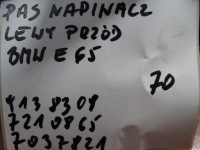 PAS NAPINACZ
LEWY PRZÓD
BMW E65
70
9138309
7210865
7037821